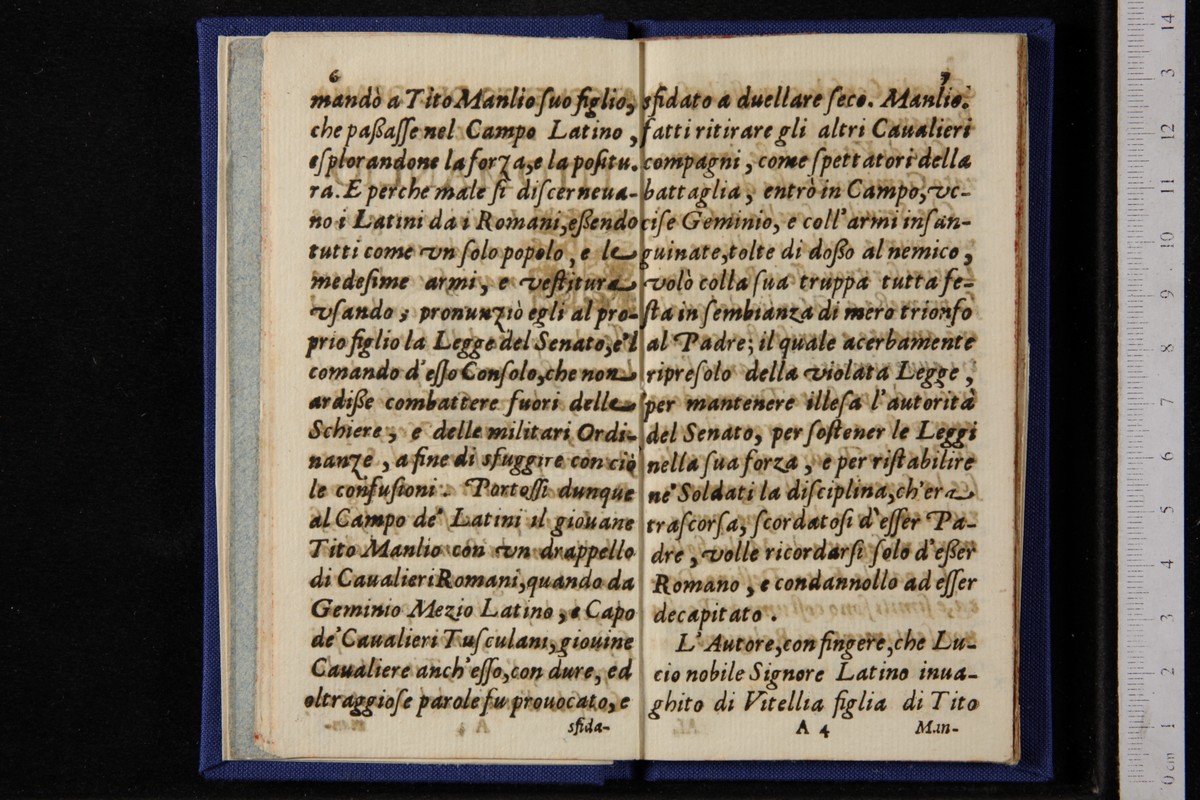 6
mandò a Tito Manlio ſuo figlio,
che paßaſſe nel Campo Latino,
eſplorandone la forza, e la poſitu.
ra. E perche male ſi diſcerneua-
no i Latini da i Romani, eßendo
tutti come vn ſolo popolo, e le
medeſime armi, e veſtitura
vſando; pronunziò egli al pro-
prio figlio la Legge del Senato, e'l
comando d'eſſo Conſolo, che non
ardiße combattere fuori delle
Schiere, e delle militari Ordi-
nanze, a fine di sfuggire con ciò
le confuſioni. Portoſſi dunque
al Campo de' Latini il giouane
Tito Manlio con vn drappello
di Caualieri Romani, quando da
Geminio Mezio Latino, e Capo
de' Caualieri Tuſculani, giouine
Caualiere anch'eſſo, con dure, ed
oltraggioſe parole fu prouocato, e
sfida-
7
sfidato a duellare ſeco. Manlio.
fatti ritirare gli altri Caualieri
compagni, come ſpettatori della
battaglia, entrò in Campo, vc-
ciſe Geminio, e coll'armi inſan-
guinate, tolte di doßo al nemico,
volò colla ſua truppa tutta fe-
ſta in ſembianza di mero trionfo
al Padre; il quale acerbamente
ripreſolo della violata Legge,
per mantenere illeſa l'autorità
del Senato, per ſoſtener le Leggi
nella ſua forza, e per riſtabilire
ne' Soldati la diſciplina, ch'era
traſcorſa, ſcordatoſi d'eſſer Pa-
dre, volle ricordarſi ſolo d'eßer
Romano, e condannollo ad eſſer
decapitato.
L'Autore, con fingere, che Lu-
cio nobile Signore Latino inua-
ghito di Vitellia figlia di Tito
A 4 Man-